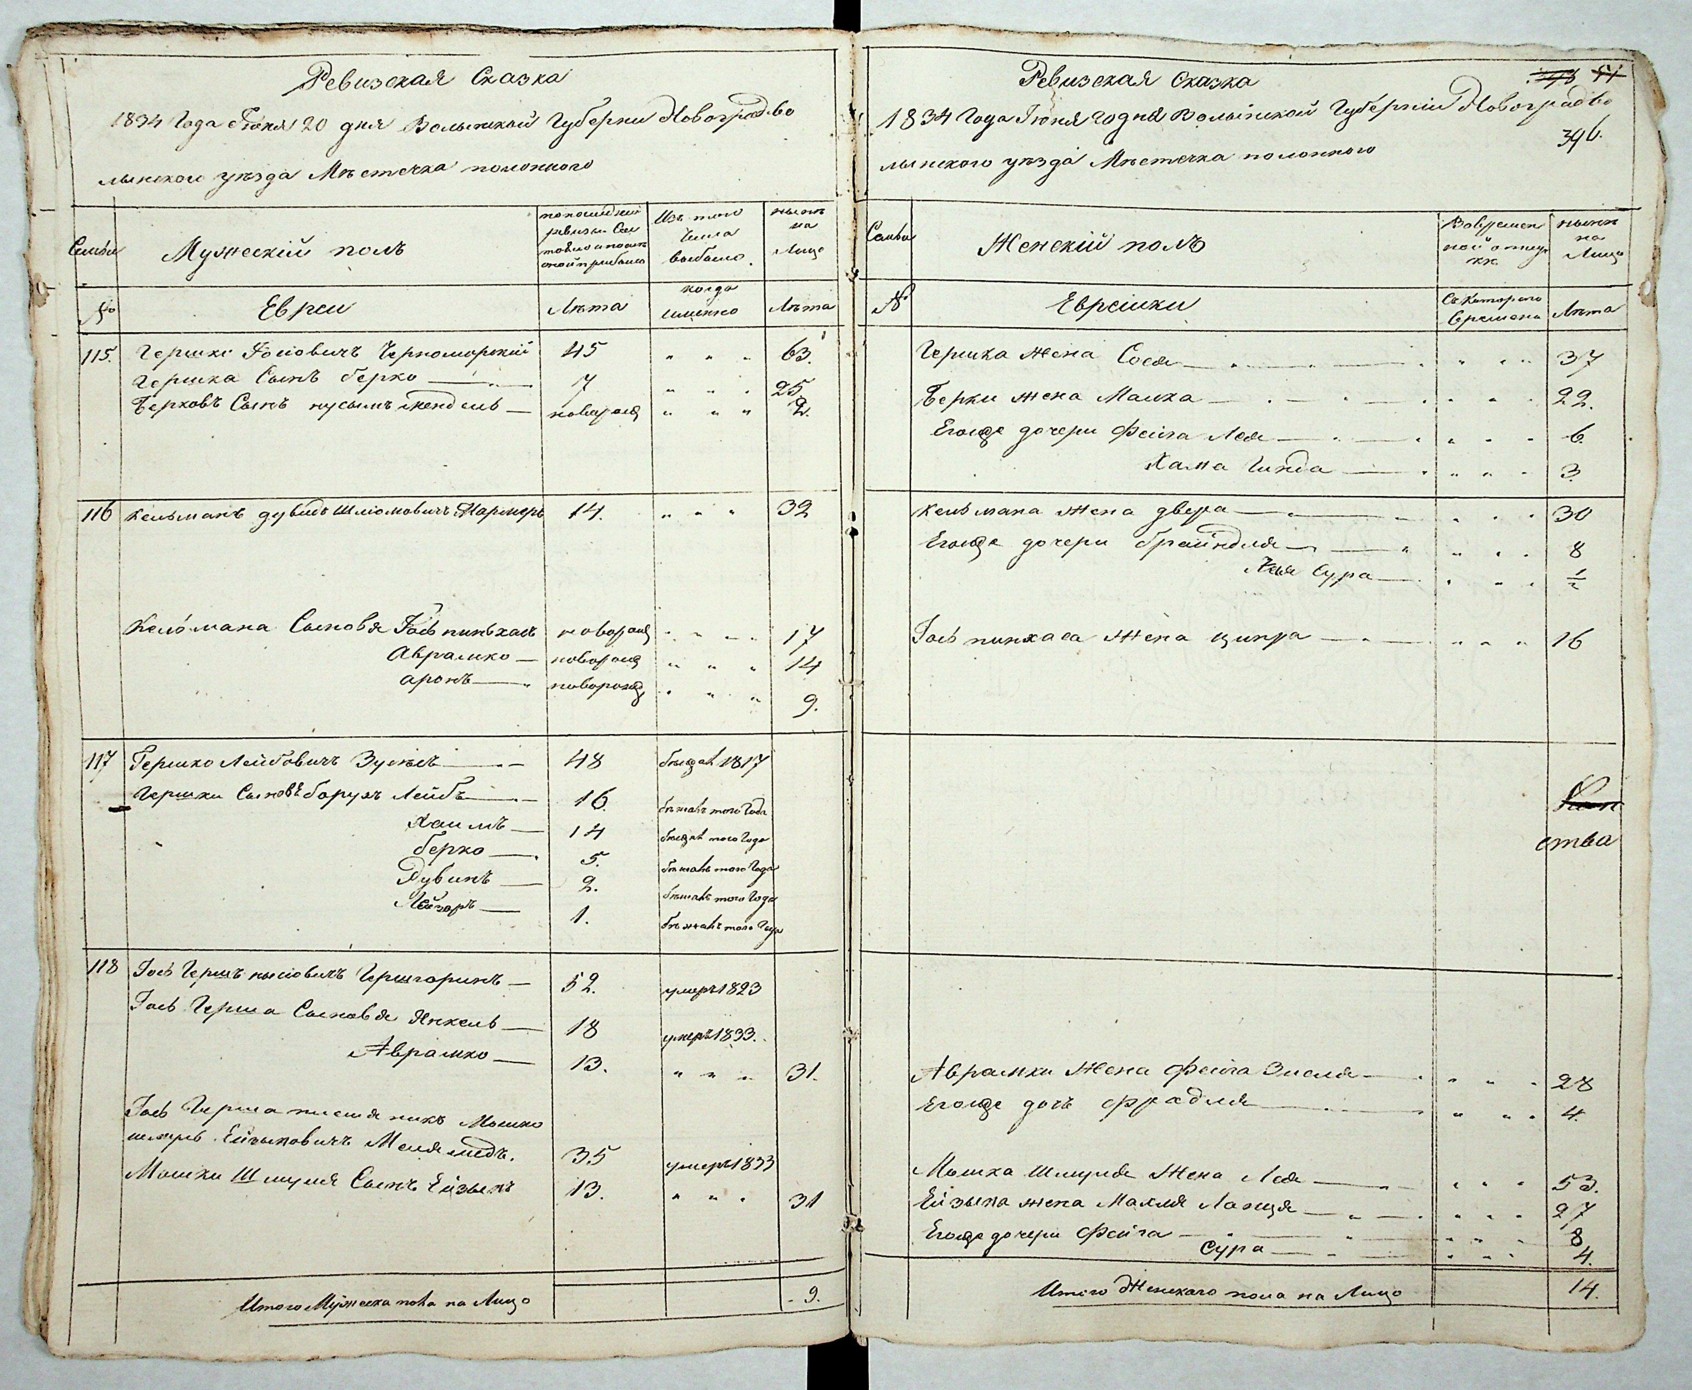 Ревизская Сказка
1834 Года Июня 20 дня Волынской Губернии Новоградво
лынского уѣзда Мѣстечка полонного
Семьи
Мужескій полъ
по последней ревизіи Со
стояло и после
оной прибыло
Изъ того
Числа
выбыло.
нынѣ
на
Лицо
№
Евреи
Лѣта
когда
именно
Лѣта
115. Гершко Іосіовичъ Черноморскій 45 " " " 63.
Гершка Сынъ берко 7 " " " 25
Берковъ Сынъ нусымъ мендель новорож " " " 2.
116 Кельманъ дувидъ Шліомовичъ 14. " " " 32
Кельмана Сыновя Іосъ пинъхасъ новорож " " " 17
Аврамко новорож " " " 14
аронъ новорожд " " " 9.
117 Гершко Лейбовичъ 48 бѣжалъ 1817
Гершки Сыновѣ борухъ Лейбъ 16 бѣжалъ того Года
Хаимъ 14 бѣжалъ того Года
берко 5. бѣжалъ того Года
Рувинъ 2. бѣжалъ того Года
Лейзоръ 1. бѣжалъ того Года
118 Іосъ Гершъ 52. умеръ 1823
Іосъ Герша Сыновя Янкель 18 умеръ 1833.
Аврамко 13. " " " 31.
Іосъ Герша племянникъ Мошко
шмуль Ейзыковичъ Меламедъ. 35 умеръ 1833
Мошки Шмуля Сынъ Ейзыкъ 13. " " " 31
Итого Мужеска пола на Лицо 9.
Ревизская Сказка
51
1834 Года Июня 20 дня Волынской Губерніи Новоградво
396.
лынского уѣзда Мѣстечка полонного
Семьи
Женскій полъ
Вовремен
ной отлуч
кѣ
нынѣ
на
Лицо
№
Еврейки
Съ Которого
Времени
Лѣта
Гершка Жена Сося " " " 37
Берки жена Малка " " " 22.
Егожде дочери Фейга Лея " " " 6
Хама Гинда " " " 3
Кельмана Жена двера " " " 30
Егожде дочери брайндля " " " 8
Хая Сура " " " ½
Іосъ пинхаса Жена ципра " " " 16
ства
Аврамки Жена Фейга Зисля " " " 28
Егожде дочь фрадля " " " 4.
Мошка Шмуля Жена Лея " " " 53.
Ейзыка жена Махля Ланця " " " 27
Егожде дочери Фейга " " " 8
Сура " " " 4.
Итого Женскаго пола на Лицо 14.